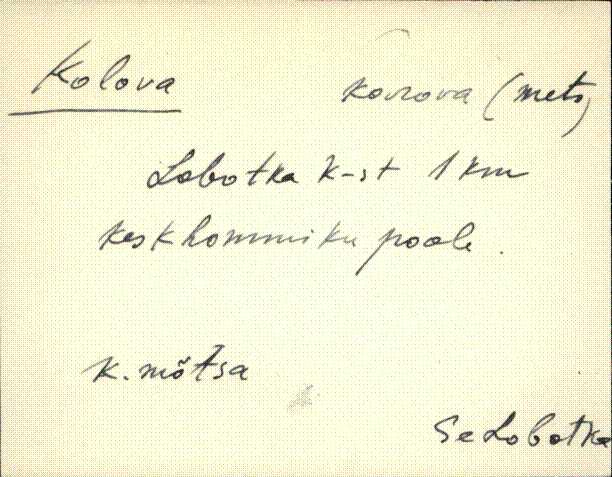 Kolova Kovrova (mets)
Lobotka k-st 1 km
keskhommiku poole.
k. mõtsa
Se Lobotka